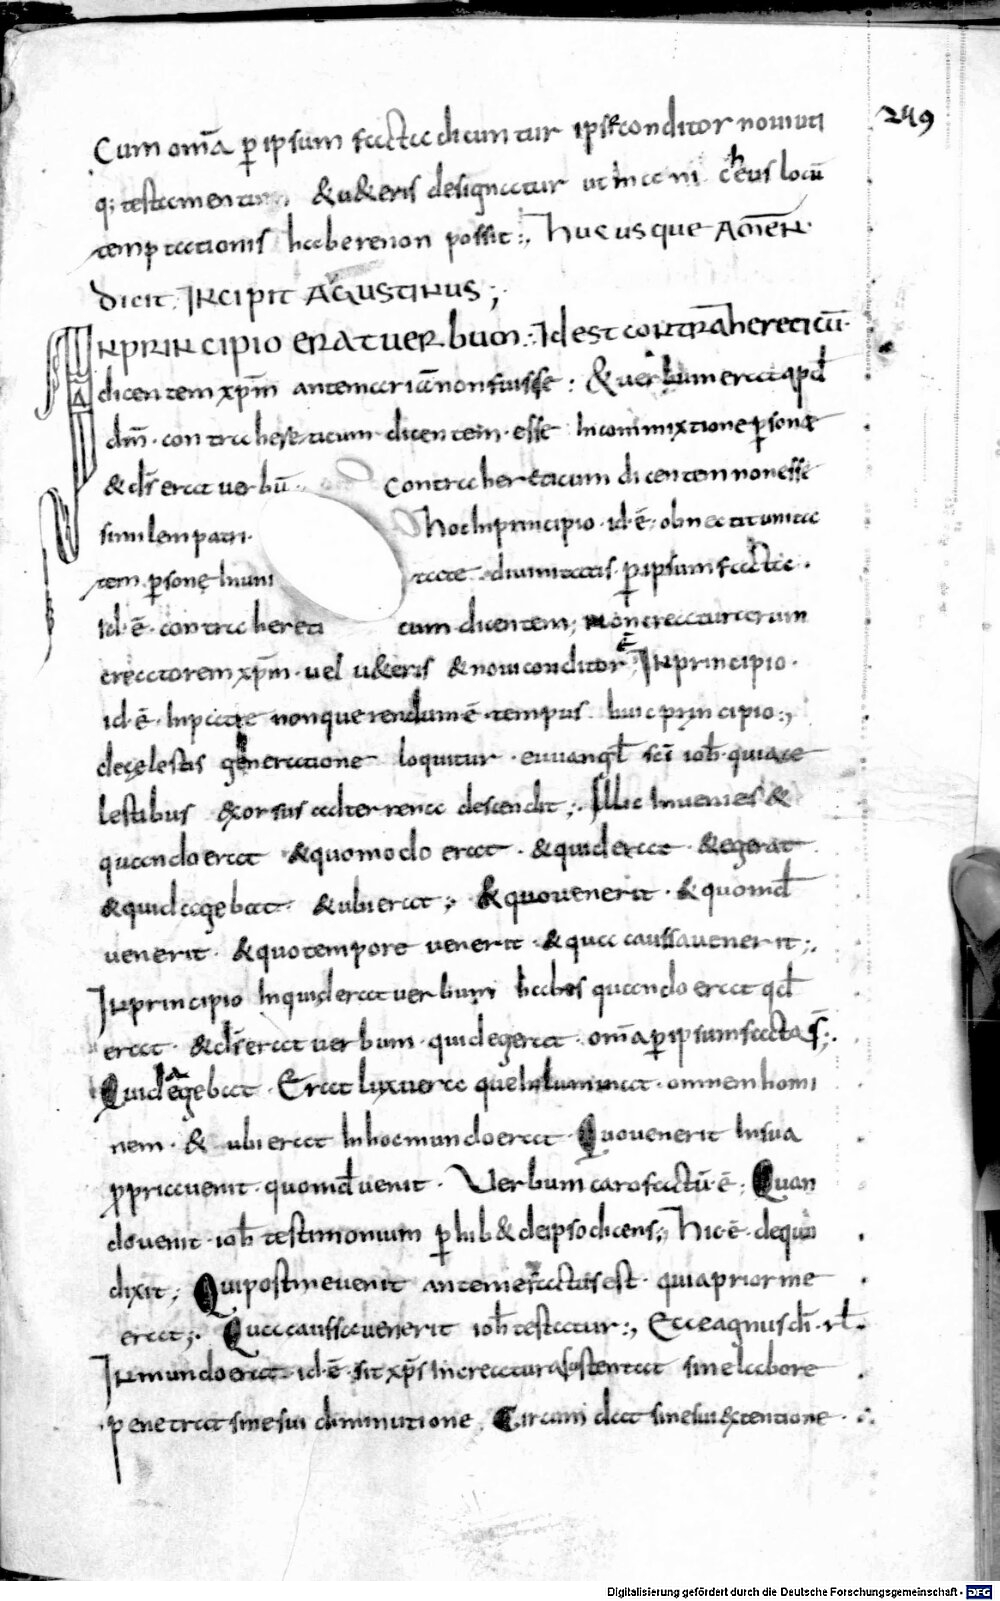 249
Cum om̄a p̱ ipsum facta dicuntur ipse conditor noui uti
q; testamentum & u&eris designatur ut mani ch̄eus locū
temptationis habere non possit:, hucusque AM̄EN·
dicit; INcipit AGUSTINUS;
INPRINcipio ERAT UERbum:, Id est coNtRa hereticū·
dicentem xp̄m ante mariā non fuisse: & uerbum erat apd̄
dm̄· contra hereticum dicentem· esse In commixtione p̱sonę
& ds̄ erat uerbū· contra hereticum dicentem non esse
similem patri· hoc In principio· id·ē· ob nec tit unita
tem p̱sonę In uni tate· diuinitatis· p̱ ipsum facta·
id·ē· contra hereti cum dicentem; non creaturarum
creatorem xp̄m· uel u&eris & noui conditor ē; INprincipio·
id·ē· In patre non querendum·ē· tempus huic principio:,
de cęlestis generatione loquitur· euuangl̄ sc̄i ioh̄· quia ce
lestibus &xorsus ad terrena descendit;· Illic Inuenies &
quando erat & quomodo erat· & quid erat· & egerat
& quid agebat· & ubi erat; & quo uenerit· & quomd̄
uenerit· & quo tempore uenerit· & qua caussa uenerit;·
INprincipio Inquid erat uerbum habes quando erat qd̄
erat· & ds̄ erat uerbum· quid egerat· om̄a p̱ ipsum facta s̄;·
Quid agebat· Erat lux uera que Inluminat· omnem homi
nem· & ubi erat In hoc mundo erat· Quo uenerit In sua
ppria uenit· quomd̄ uenit· Uerbum caro factū·ē; Quan
do uenit· ioh̄ testimonium p̱hib& de ipso dicens; hic·ē· de quo
dixit; Qui post me uenit ante me factus est· quia prior me
erat;· Qua caussa uenerit ioh̄ testatur:, Ecce agnus dī· rl̄·
IN mundo erat· id·ē· sit xp̄s In creatura sustentat sine labore
penetrat sine sui diminutione· Circum dat sine sui &xtentione·
Digitalisierung gefördert durch die Deutsche Forschungsgemeinschaft - DFG